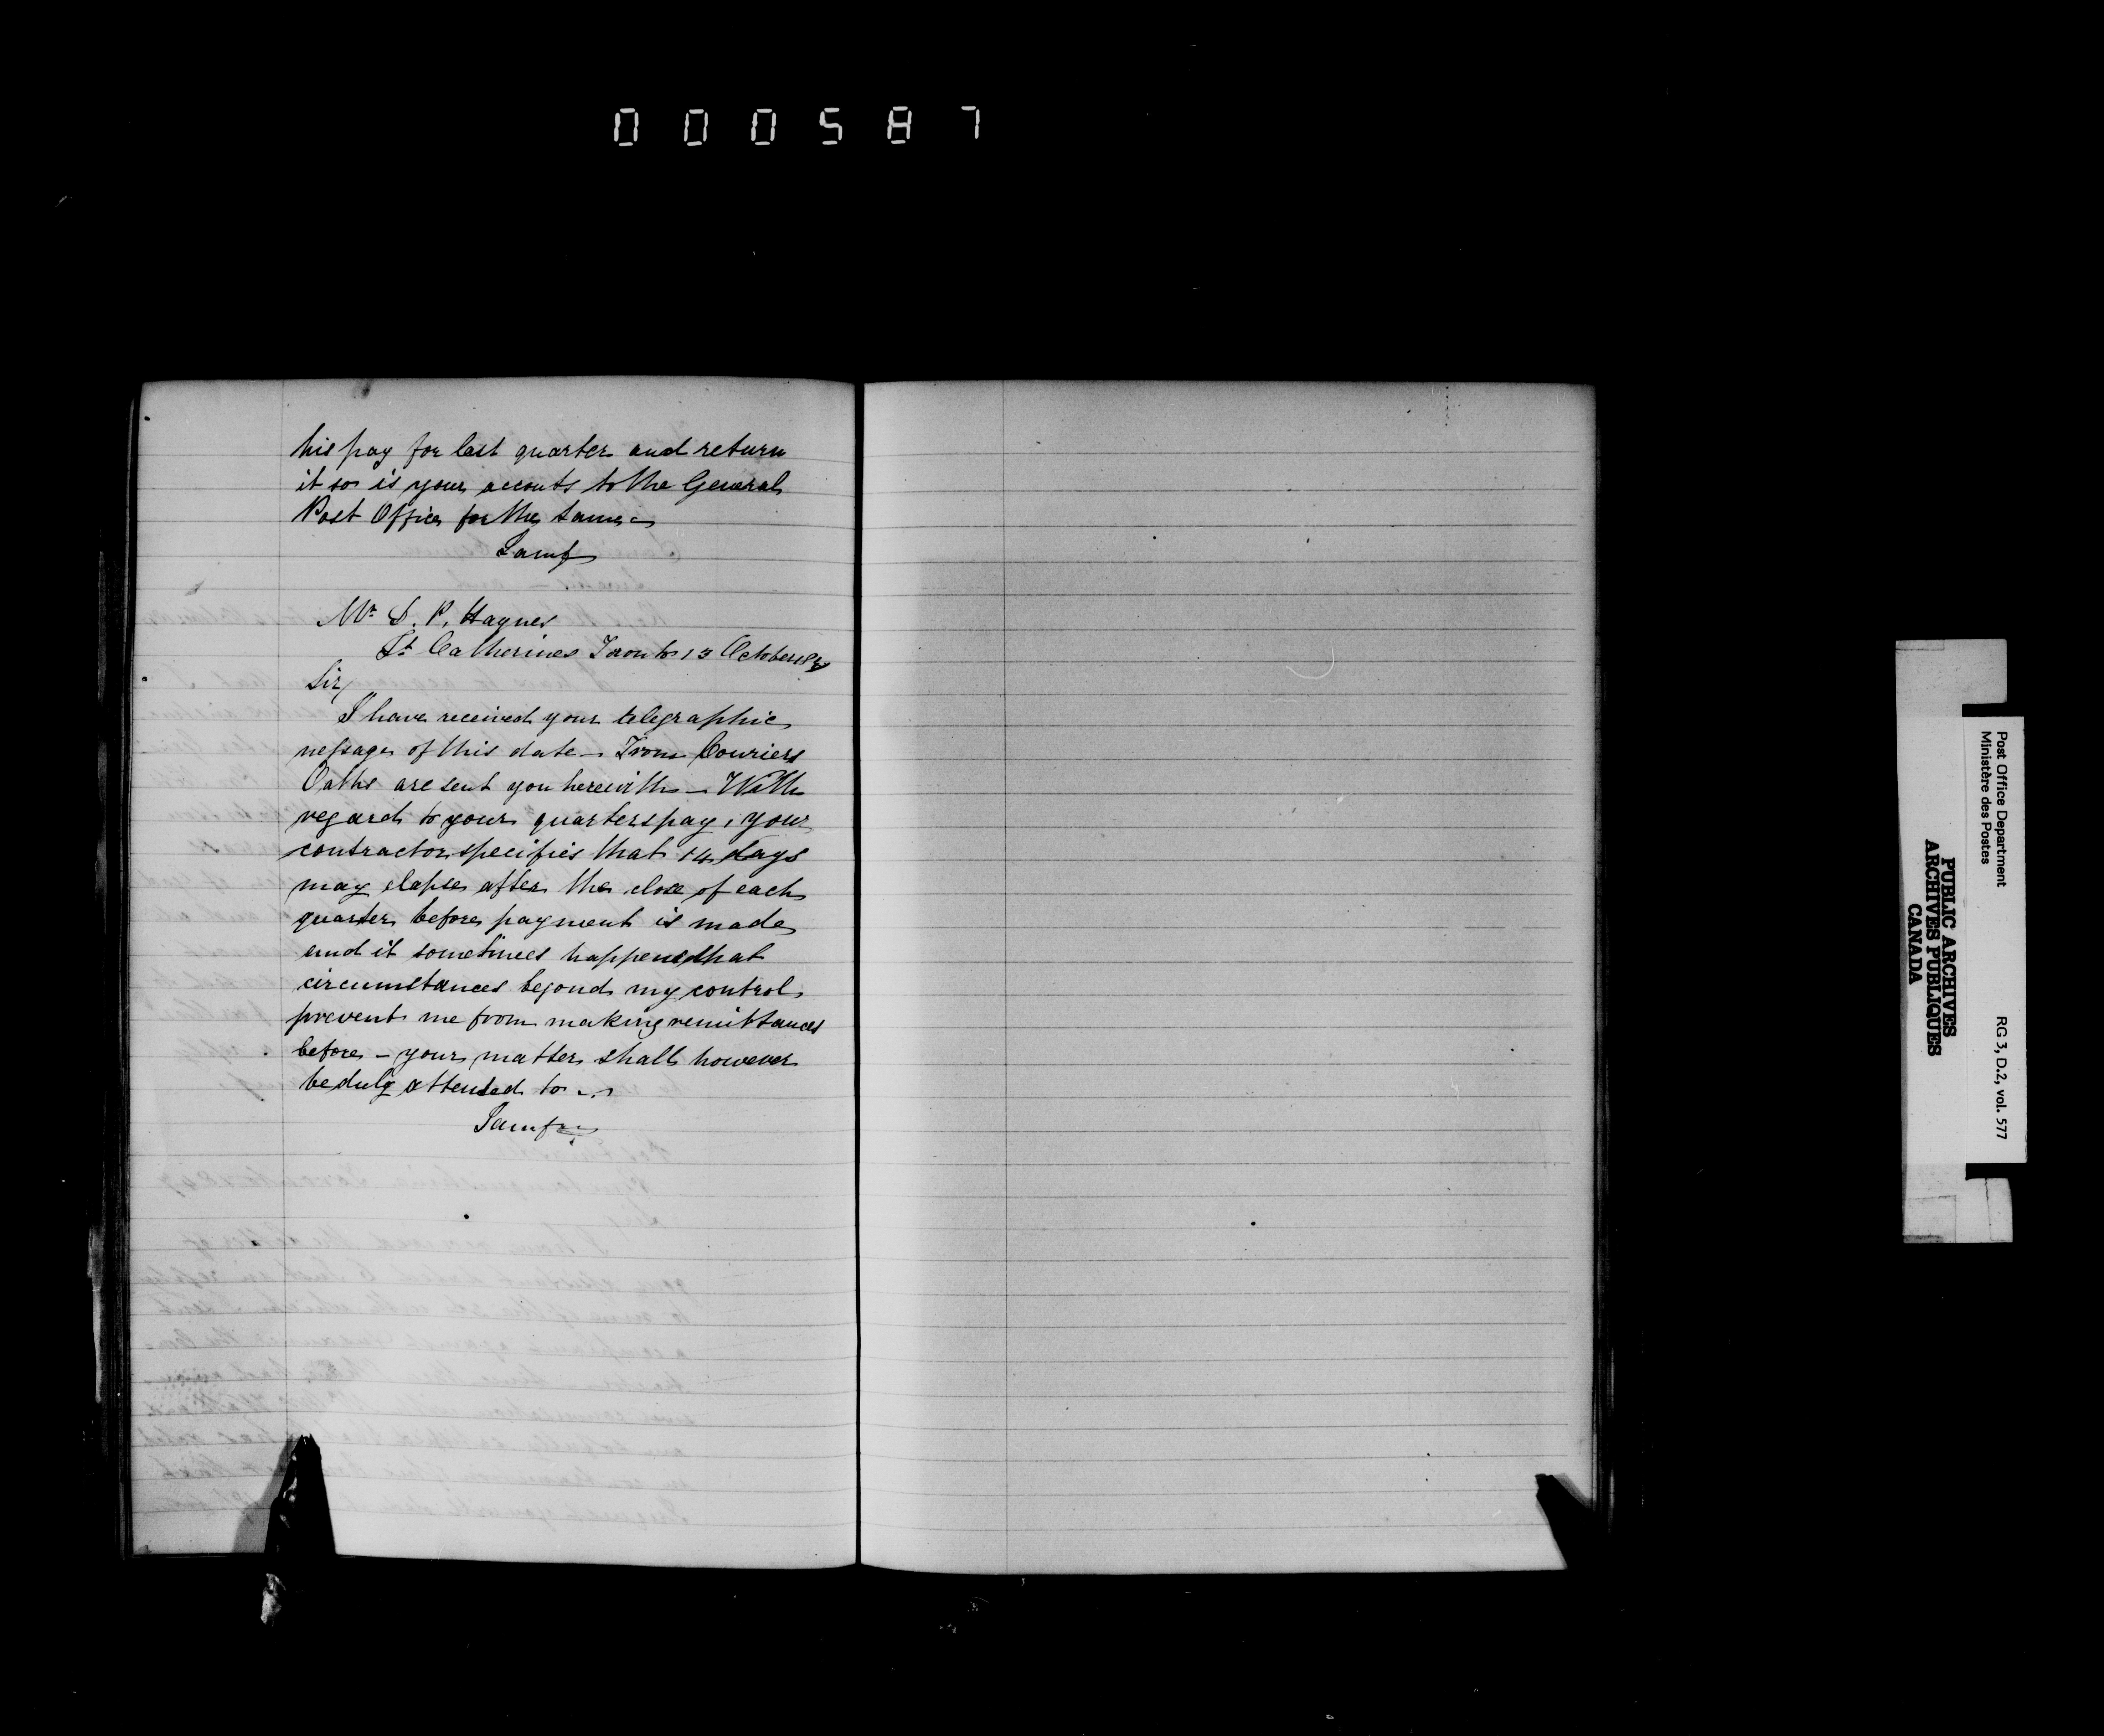 000587
his pay for last quarter and return
it so is your accouts to the General
Post Office for the same
Mr. D. P. Haynes
St. Catherines Toronto 13 October
Sir,
I have received your telegraphic
message of this date Croms Couriers
Oaths are sent you herewith — With
regard to your quarters pay, your
contractor specifies that 14 days
may elapse after the close of each
quarter before payment is made
and it sometimes happens that
circumstances beyond my control
prevent me from making remittances
before — your matter shall however
be duly attended to
Post Office Department
Ministère des Postes
RG 3, D.2, vol. 577
PUBLIC ARCHIVES
ARCHIVES PUBLIQUES
CANADA